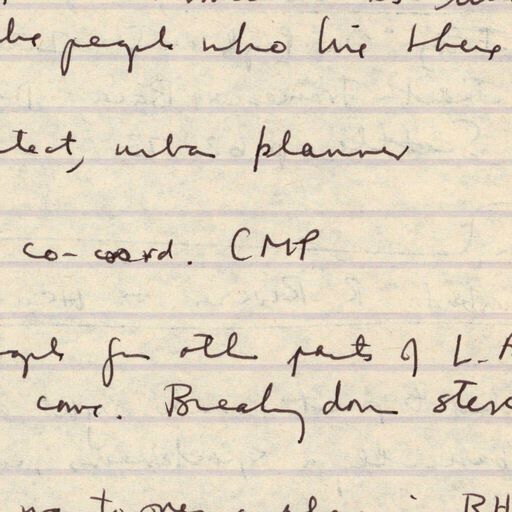 he people who live there
tect, urban planner
co-coord. CMP
ople from other parts of L.A
come. Breaking down stere